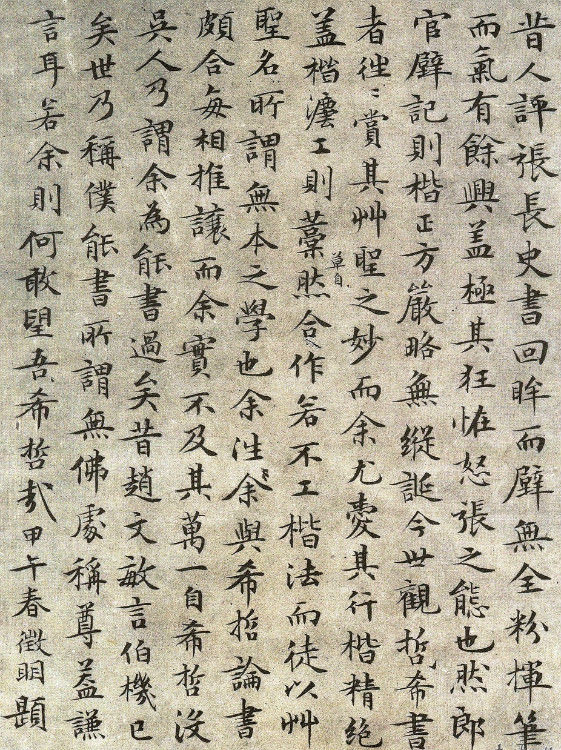 昔人評張長史書回眸而壁無全粉揮筆
而氣有餘興盖極其狂怪怒張之態也然郎
官壁記則楷正方嚴略無縱誕今世觀哲希書
者徃〻賞其艸聖之妙而余尤愛其行楷精絕
盖楷灋工則藁然合作若不工楷法而徒以艸
草自
聖名所謂無本之學也余往余與希哲論書
頗合每相推讓而余實不及其萬一自希哲没
吳人乃謂余為能書過矣昔趙文敏言伯機已
矣世乃稱僕能書所謂無佛處稱尊益謙
言耳若余則何敢望吾希哲哉甲午春徵明題